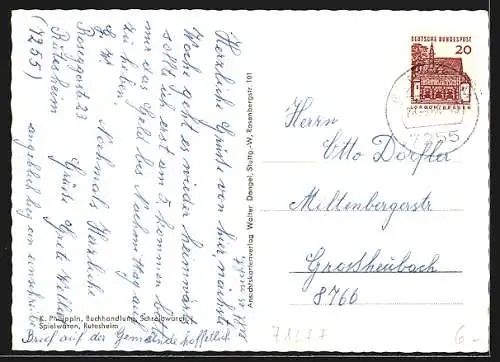 Herzliche Grüße von hier, nächste
Woche geht es wieder heimwärts
sollt ich erst am 5. kommen bitte
mir das Geld bis Nachmittag auf
zu heben.
Nochmals Herzliche
Grüße Grete
Rosegport. 23
Rutesheim
(7255)
angeblich lag ein
Brief auf der Gemeinde hoffentlich
K. Philippin, Buchhandlung, Schreibwaren,
Spielwaren, Rutesheim
Ansichtskartenverlag Walter Dangel, Stuttg.-W, Rosenbergstr. 101
DEUTSCHE BUNDESPOST
20
LORSCH/HESSEN
7255
Herrn
Otto Dörfler
Miltenbergerstr
Großheubach
8766